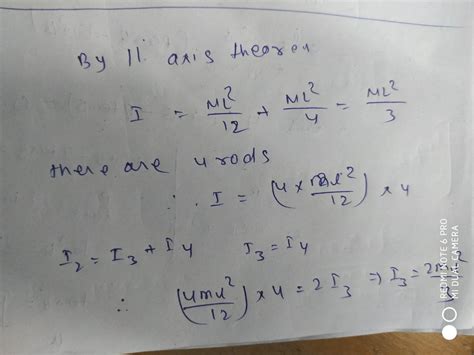 By 11 axis theorem
I = ML²/12 + ML²/4 = ML²/3
there are 4 rods
∴ I = (4 × ml²/12) × 4
I₂ = I₃ + I₄ I₃ = I₄
∴ (4ml²/12) × 4 = 2 I₃ ⇒ I₃ =
REDMI NOTE 6 PRO
MI DUAL CAMERA